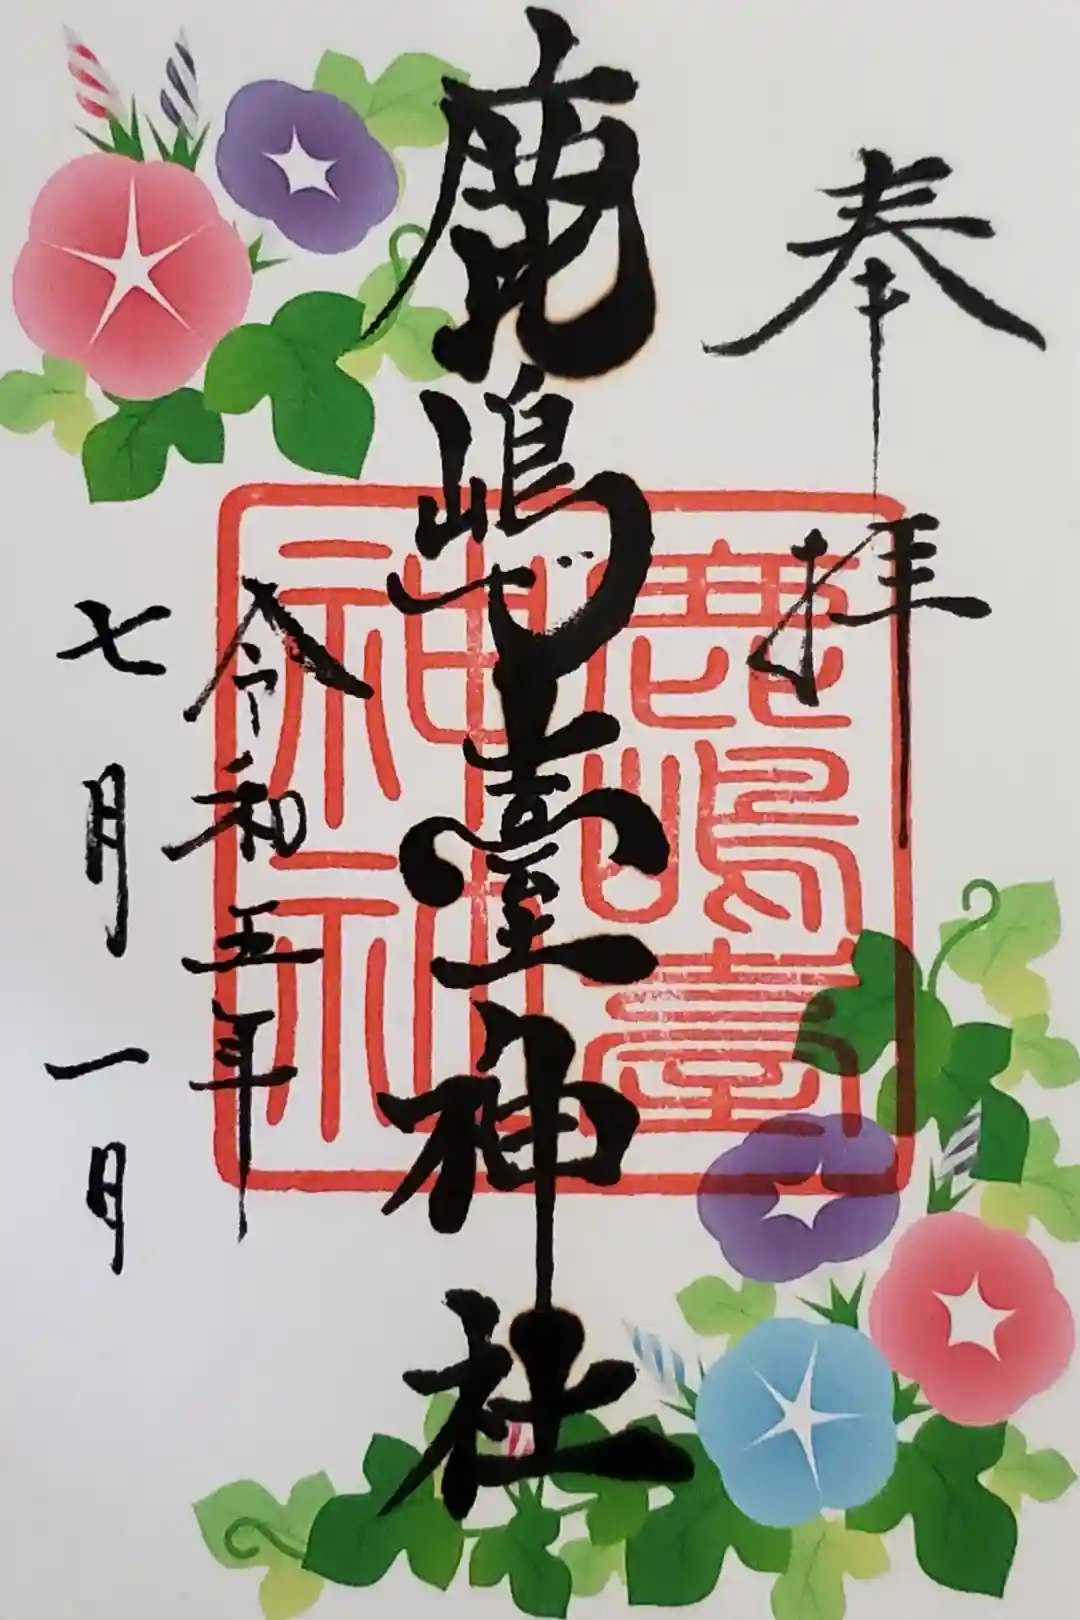 奉拝
鹿嶋臺神社
鹿嶋臺
神社
令和五年
七月一日